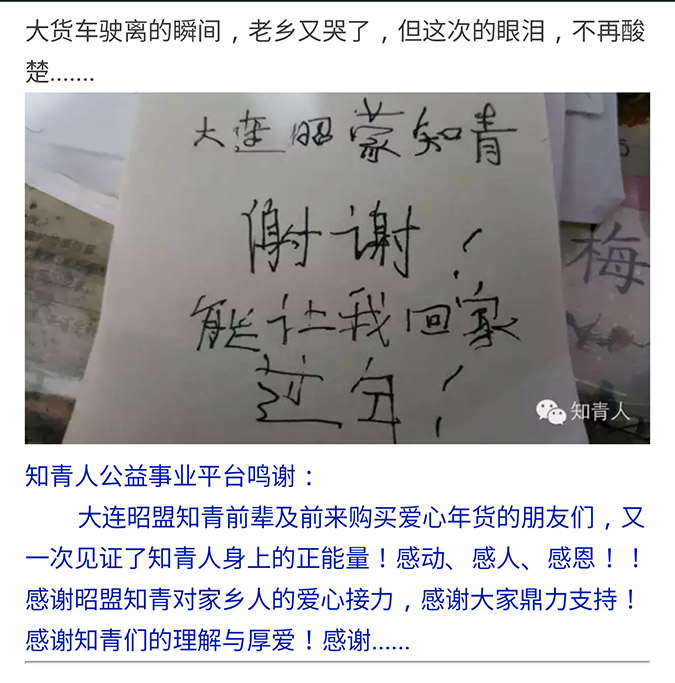 大货车驶离的瞬间，老乡又哭了，但这次的眼泪，不再酸
楚.......
大连昭蒙知青
谢谢！
能让我回家
过年！
梅
知青人
知青人公益事业平台鸣谢：
大连昭盟知青前辈及前来购买爱心年货的朋友们，又
一次见证了知青人身上的正能量！感动、感人、感恩！！
感谢昭盟知青对家乡人的爱心接力，感谢大家鼎力支持！
感谢知青们的理解与厚爱！感谢......